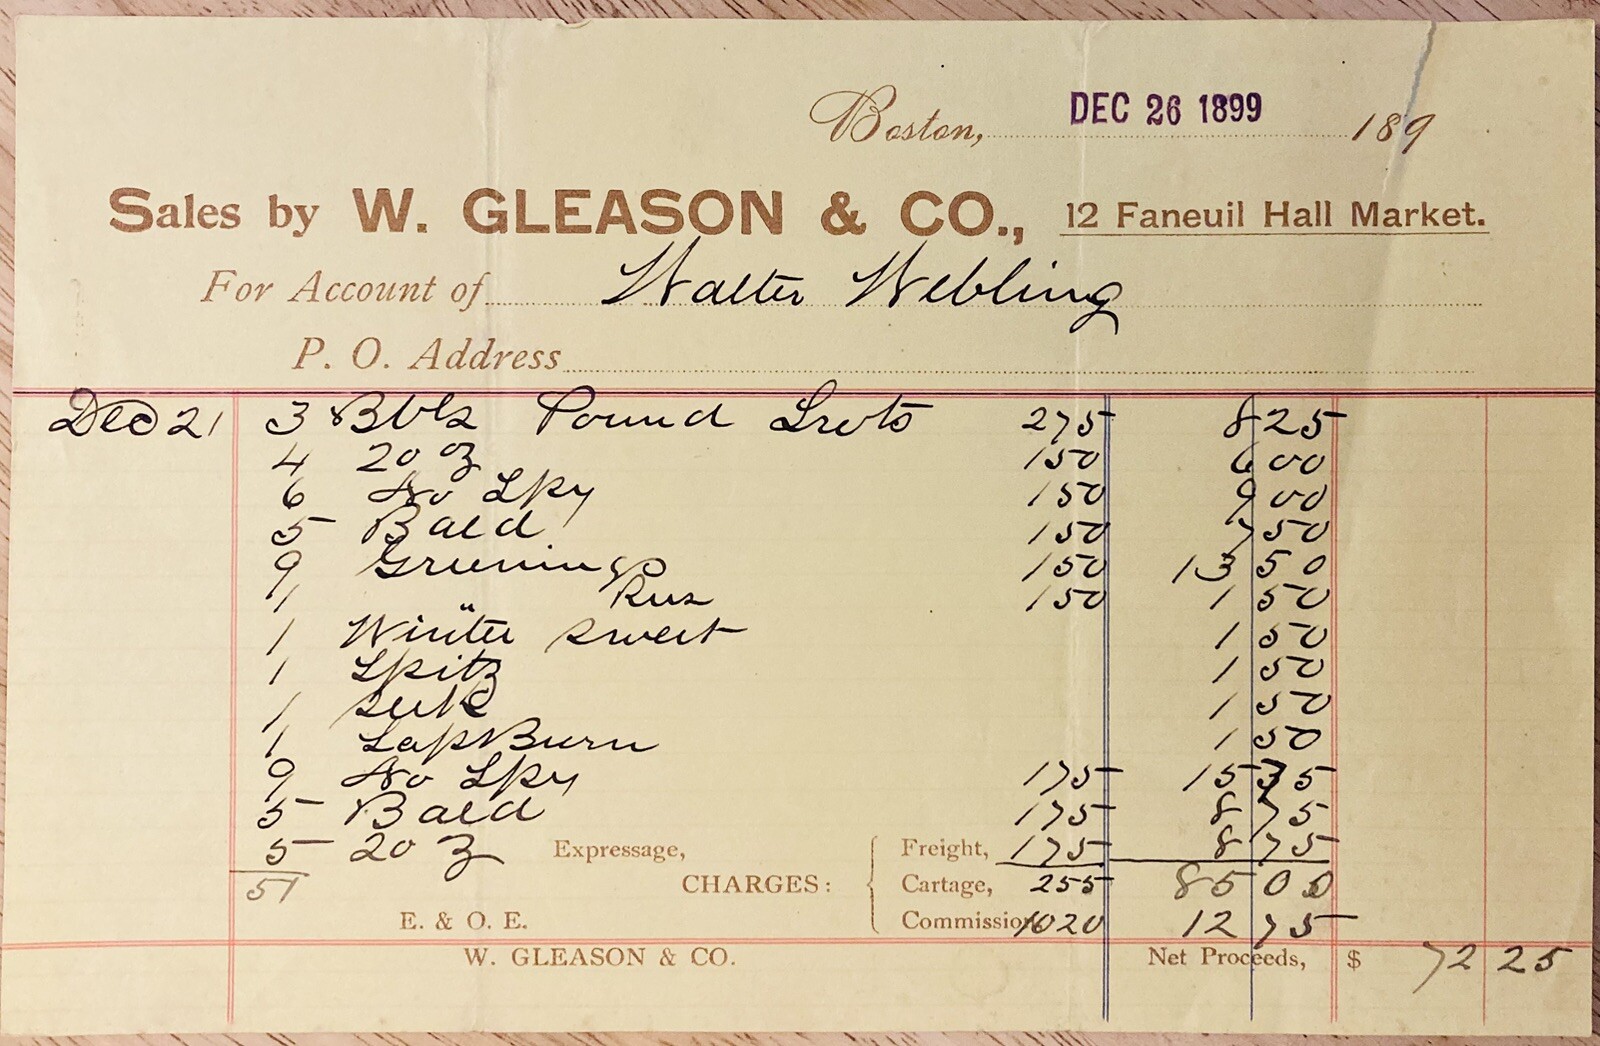 Boston, DEC 26 1899 189
Sales by W. GLEASON & CO., 12 Faneuil Hall Market.
For Account of Walter Webling
P. O. Address
Dec 21 3 Bbls Pound Swts 275 8 25
4 20 oz 150 6 00
6 No Spy 150 9 00
5 Bald 150 7 50
9 Greenings 150 13 50
1 " Rus 150 1 50
1 Winter Sweet 1 50
1 Spitz 1 50
1 Seek 1 50
1 1 50
9 No Spy 175 15 75
5 Bald 175 8 75
5 20 oz Expressage, Freight, 175 8 75
51 CHARGES: Cartage, 255 85 00
E. & O. E. Commission 1020 12 75
W. GLEASON & CO. Net Proceeds, $ 72 25